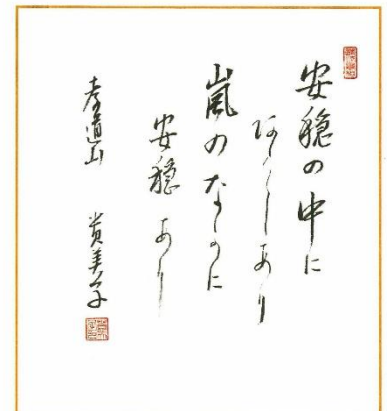 安穏の中に
あらしあり
嵐のなかに
安穏あり
孝道山 貴美子